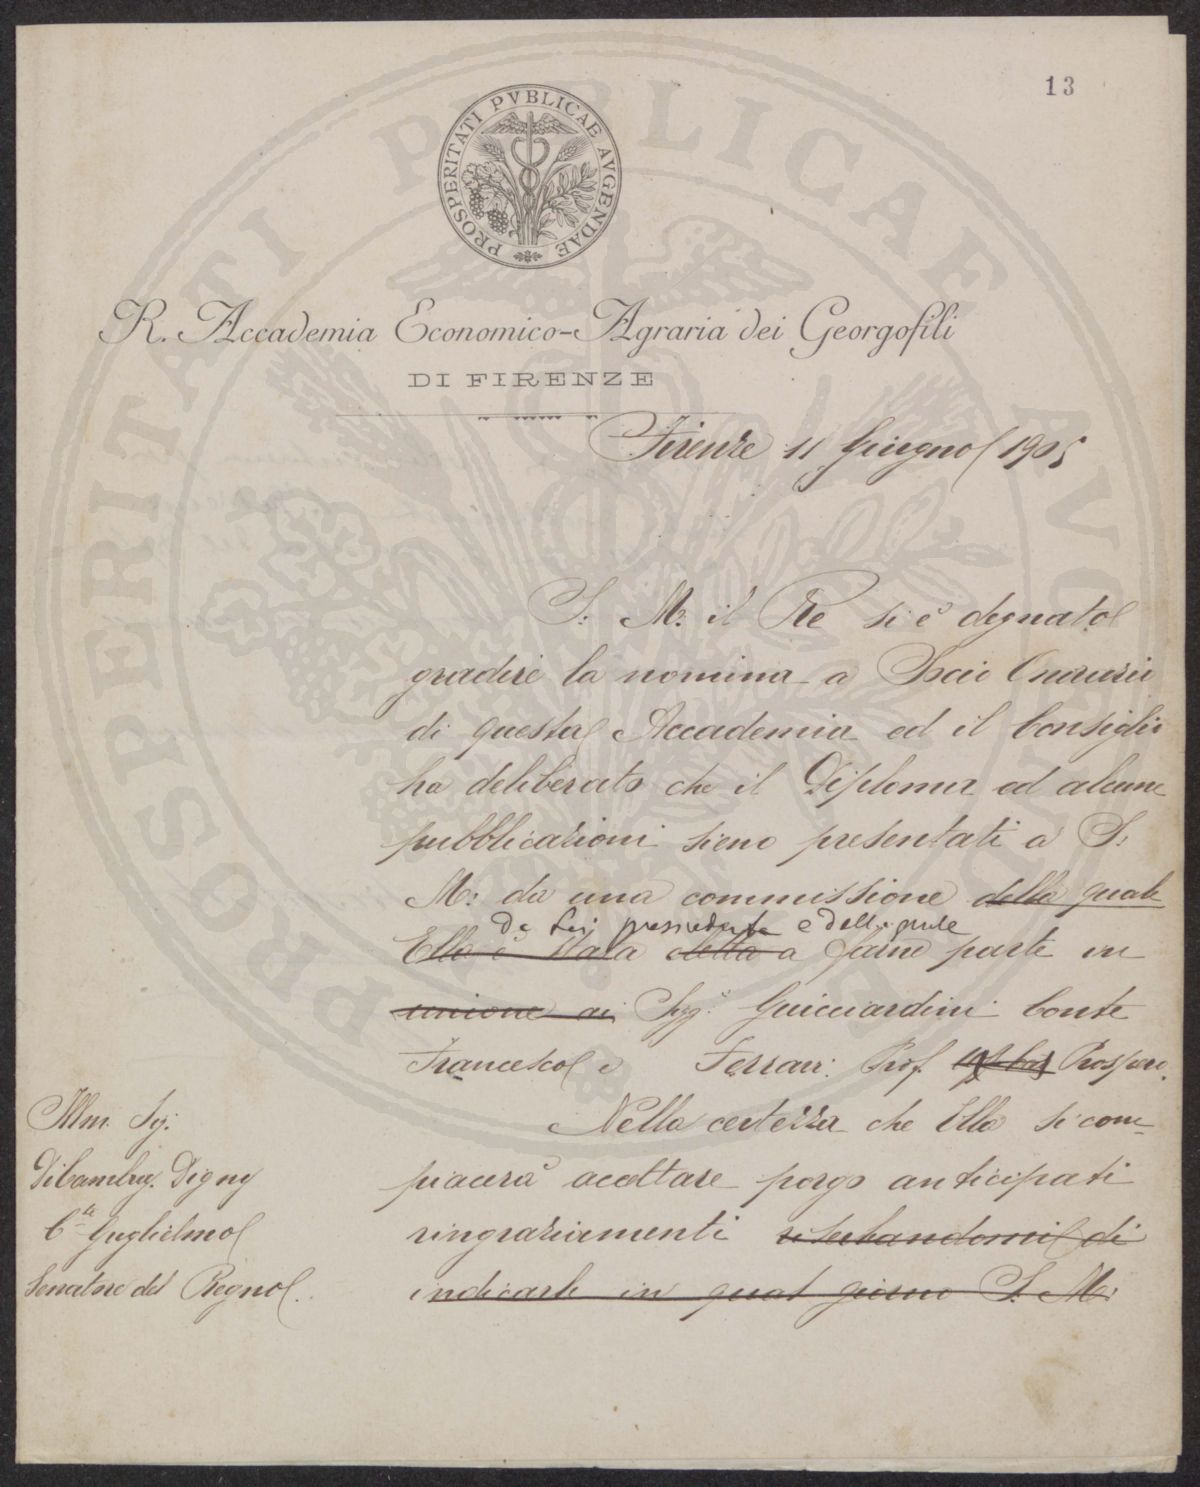 13
PROSPERITATI PVBLICAE AVGENDAE
R. Accademia Economico-Agraria dei Georgofili
DI FIRENZE
Firenze 11 Giugno 1905
S. M. il Re si è degnato
gradire la nomina a Socio Onorario
di questa Accademia ed il Consiglio
ha deliberato che il Diploma ed alcune
pubblicazioni sieno presentati a S.
M. da una commissione della quale
da Lei presieduta e della quale
Ella è stata eletta a farne parte in
unione ai Sigg. Guicciardini Conte
Francesco e Ferrari Prof. Prospero.
Nella certezza che Ella si com-
piacerà accettare porgo anticipati
ringraziamenti riserbandomi di
indicarle in qual giorno S. M.
Illm. Sig.
Di Cambray Digny
Cte Guglielmo
Senatore del Regno.